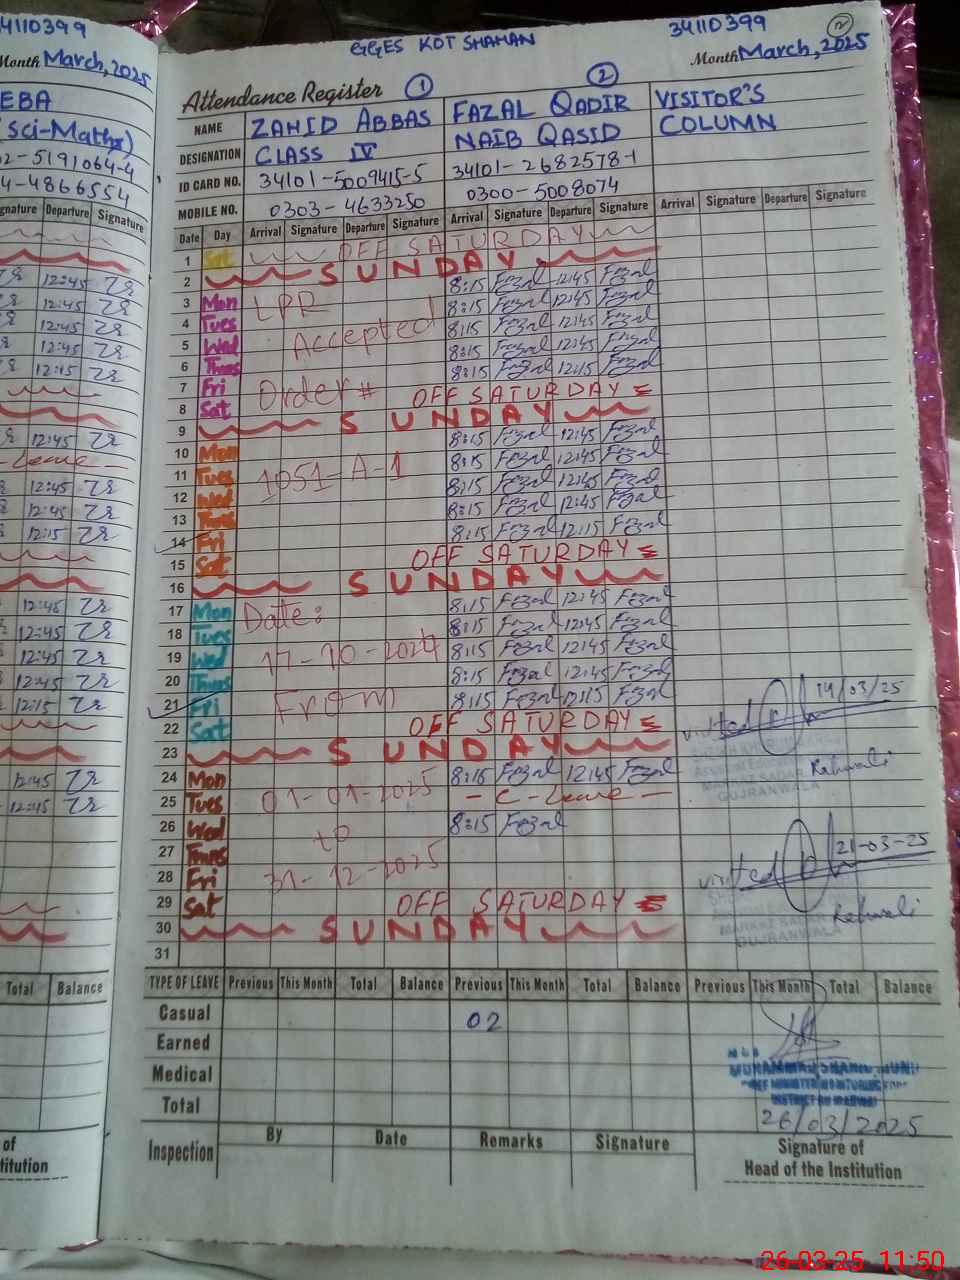 34110399
Month March, 2025
EBA
(Sci-Math)
02-5191064-4
4-4866554
Signature Departure Signature
12:45
12:45
12:45
12:45
12:15
12:45
Leave
12:45
12:45
12:15
12:45
12:45
12:45
12:45
12:15
12:45
12:45
Total Balance
of
titution
GGES KOT SHAHAN 34110399
Month March, 2025
Attendance Register 1 2
NAME ZAHID ABBAS FAZAL QADIR VISITOR'S
DESIGNATION CLASS IV NAIB QASID COLUMN
ID CARD NO. 34101-5009415-5 34101-2682578-1
MOBILE NO. 0303-4633250 0300-5008074
Date Day Arrival Signature Departure Signature Arrival Signature Departure Signature Arrival Signature Departure Signature
1 Sat OFF SATURDAY
2 SUNDAY
3 Mon LPR 8:15 Fazal 12:45 Fazal
4 Tues 8:15 Fazal 12:45 Fazal
5 Wed Accepted 8:15 Fazal 12:45 Fazal
6 Thurs 8:15 Fazal 12:45 Fazal
7 Fri Order # 8:15 Fazal 12:15 Fazal
8 Sat OFF SATURDAY
9 SUNDAY
10 Mon 8:15 Fazal 12:45 Fazal
11 Tues 1051-A-1 8:15 Fazal 12:45 Fazal
12 Wed 8:15 Fazal 12:45 Fazal
13 Thurs 8:15 Fazal 12:45 Fazal
14 Fri 8:15 Fazal 12:15 Fazal
15 Sat OFF SATURDAY
16 SUNDAY
17 Mon Date: 8:15 Fazal 12:45 Fazal
18 Tues 8:15 Fazal 12:45 Fazal
19 Wed 17-10-2024 8:15 Fazal 12:45 Fazal
20 Thurs 8:15 Fazal 12:45 Fazal
21 Fri From 8:15 Fazal 12:15 Fazal 14/03/25
22 Sat OFF SATURDAY visited
23 SUNDAY
24 Mon 8:15 Fazal 12:45 Fazal Rahwali
25 Tues 01-01-2025 - C-Leave - GUJRANWALA
26 Wed to 8:15 Fazal
27 Thurs 21-03-25
28 Fri 31-12-2025 visited
29 Sat OFF SATURDAY Rahwali
30 SUNDAY GUJRANWALA
31
TYPE OF LEAVE Previous This Month Total Balance Previous This Month Total Balance Previous This Month Total Balance
Casual 02
Earned
Medical
Total 26/03/2025
Inspection By Date Remarks Signature
Signature of
Head of the Institution
26-03-25 11:50